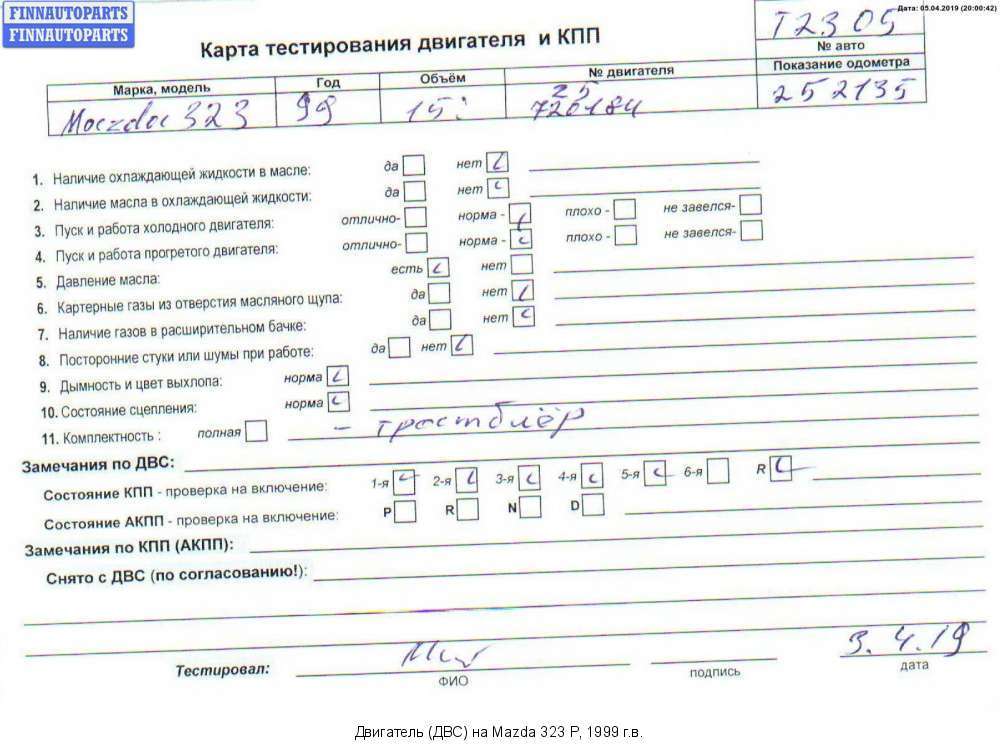 FINNAUTOPARTS
FINNAUTOPARTS
Дата: 05.04.2019 (20:00:42)
T2305
№ авто
Карта тестирования двигателя и КПП
Марка, модель Год Объём № двигателя Показание одометра
Mazda 323 99 15 Z5 726184 252135
1. Наличие охлаждающей жидкости в масле: да нет
2. Наличие масла в охлаждающей жидкости: да нет
3. Пуск и работа холодного двигателя: отлично- норма - плохо - не завелся-
4. Пуск и работа прогретого двигателя: отлично- норма - плохо - не завелся-
5. Давление масла: есть нет
6. Картерные газы из отверстия масляного щупа: да нет
7. Наличие газов в расширительном бачке: да нет
8. Посторонние стуки или шумы при работе: да нет
9. Дымность и цвет выхлопа: норма
10. Состояние сцепления: норма
11. Комплектность : полная - трамблёр
Замечания по ДВС:
Состояние КПП - проверка на включение: 1-я 2-я 3-я 4-я 5-я 6-я R
Состояние АКПП - проверка на включение: P R N D
Замечания по КПП (АКПП):
Снято с ДВС (по согласованию!):
Тестировал: 3.4.19
ФИО подпись дата
Двигатель (ДВС) на Mazda 323 P, 1999 г.в.